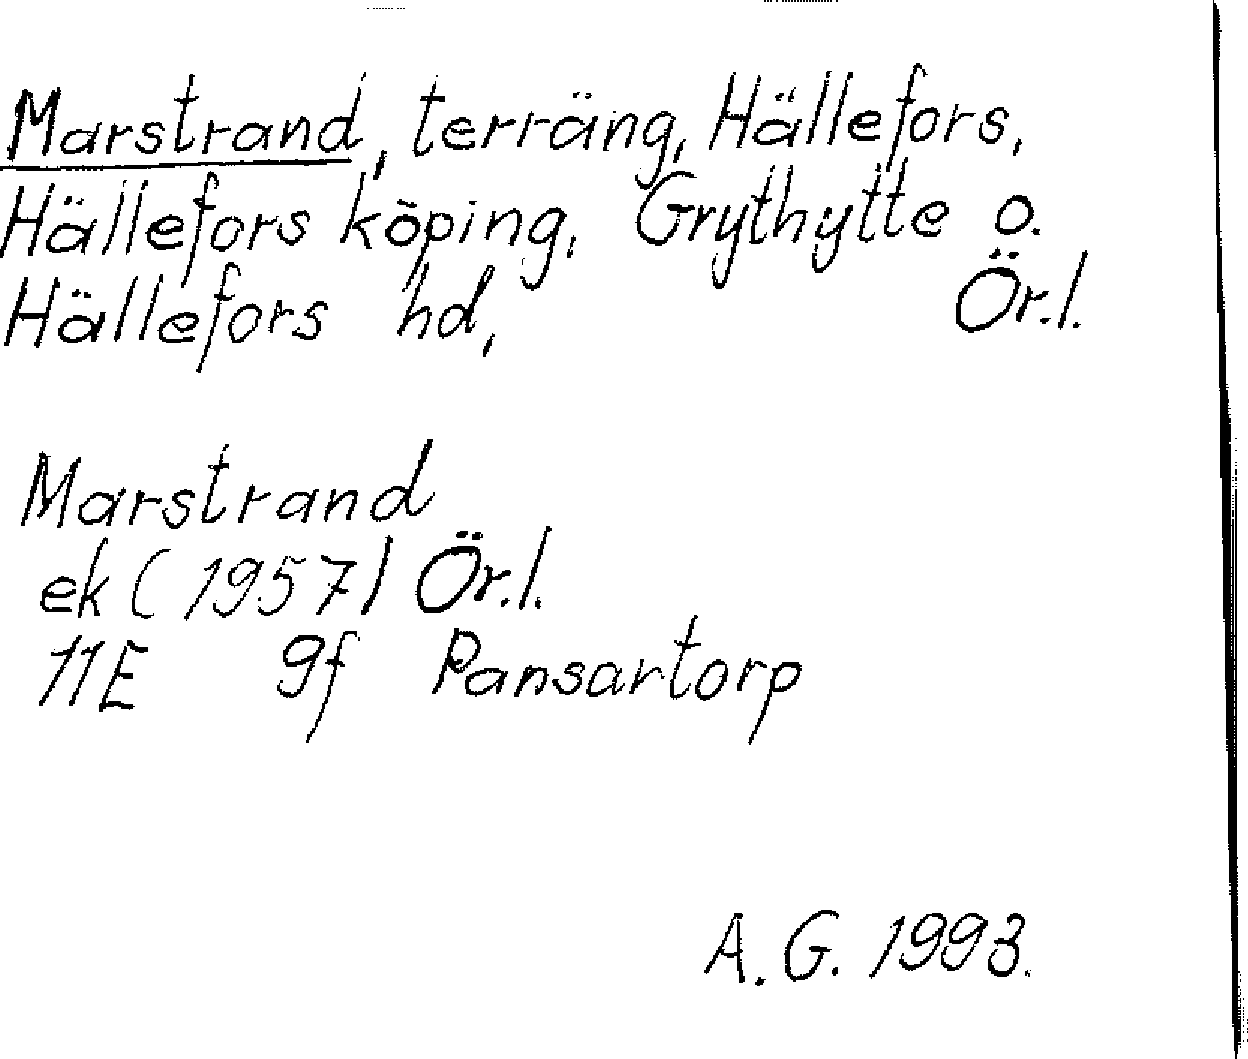 Marstrand, terräng, Hällefors,
Hällefors köping, Grythytte o.
Hällefors hd, Ör.l.
Marstrand
ek (1957) Ör.l.
11E 9f Pansartorp
A.G. 1993.